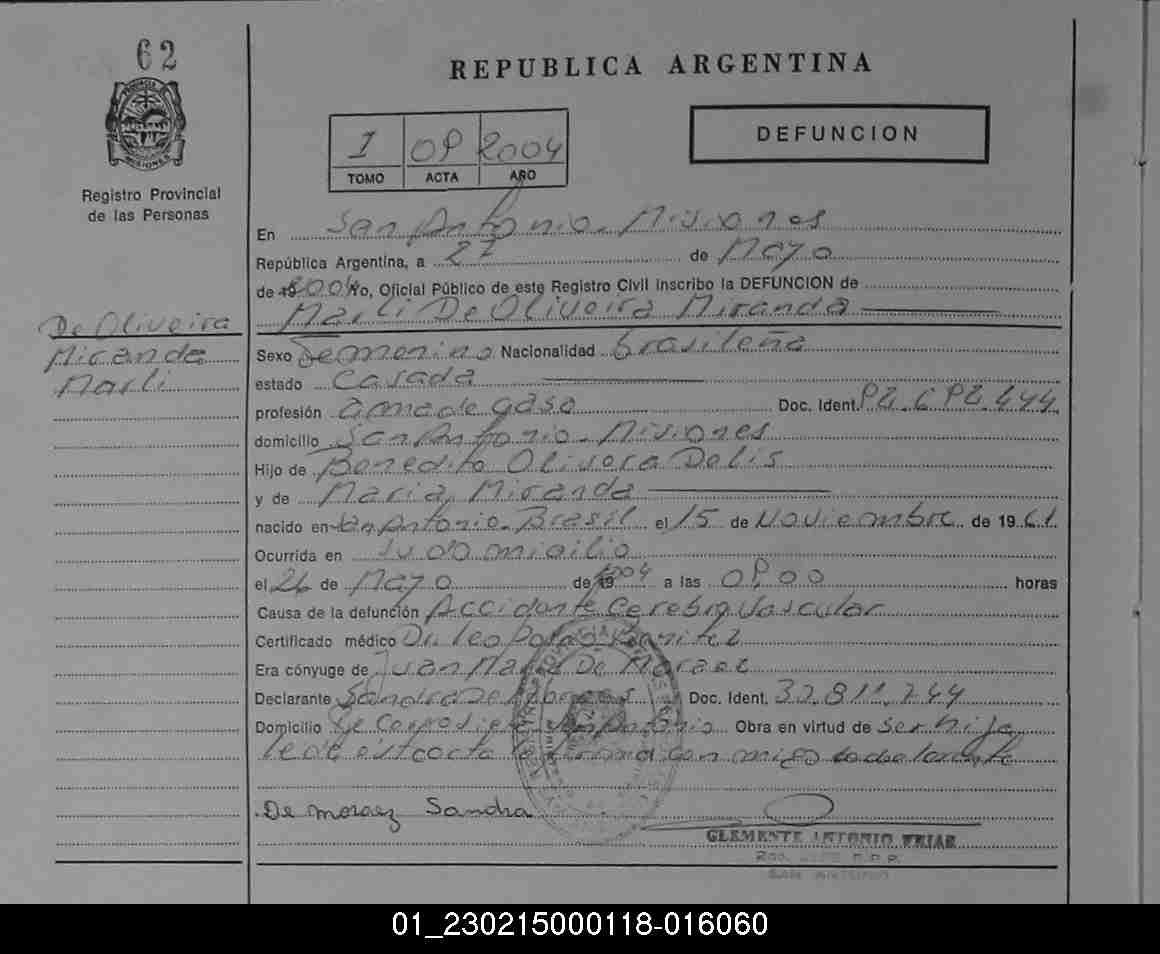 62
PROVINCIA DE MISIONES
Registro Provincial
de las Personas
REPUBLICA ARGENTINA
I 09 2004
TOMO ACTA AÑO
DEFUNCION
En San Antonio - Misiones
República Argentina, a 27 de Mayo
de 2004 Yo, Oficial Público de este Registro Civil inscribo la DEFUNCION de
Marli De Oliveira Miranda
De Oliveira
Miranda
Marli
Sexo Femenino Nacionalidad brasileña
estado Casada
profesión ama de casa Doc. Ident. 92.692.444
domicilio San Antonio - Misiones
Hijo de Benedito Olivera Delis
y de Maria Miranda
nacido en San Antonio - Brasil el 15 de Noviembre de 1961
Ocurrida en su domicilio
el 26 de Mayo de 2004 a las 09.00 horas
Causa de la defunción Accidente Cerebro Vascular
Certificado médico Dr. Leopoldo Benitez
Era cónyuge de Juan De Moraez
Declarante Sandra De Moraes Doc. Ident. 32.811.244
Domicilio San Antonio Obra en virtud de ser hija
leida esta acta la firma conmigo la declarante
De moraez Sandra
CLEMENTE ANTONIO
SAN ANTONIO
01_230215000118-016060